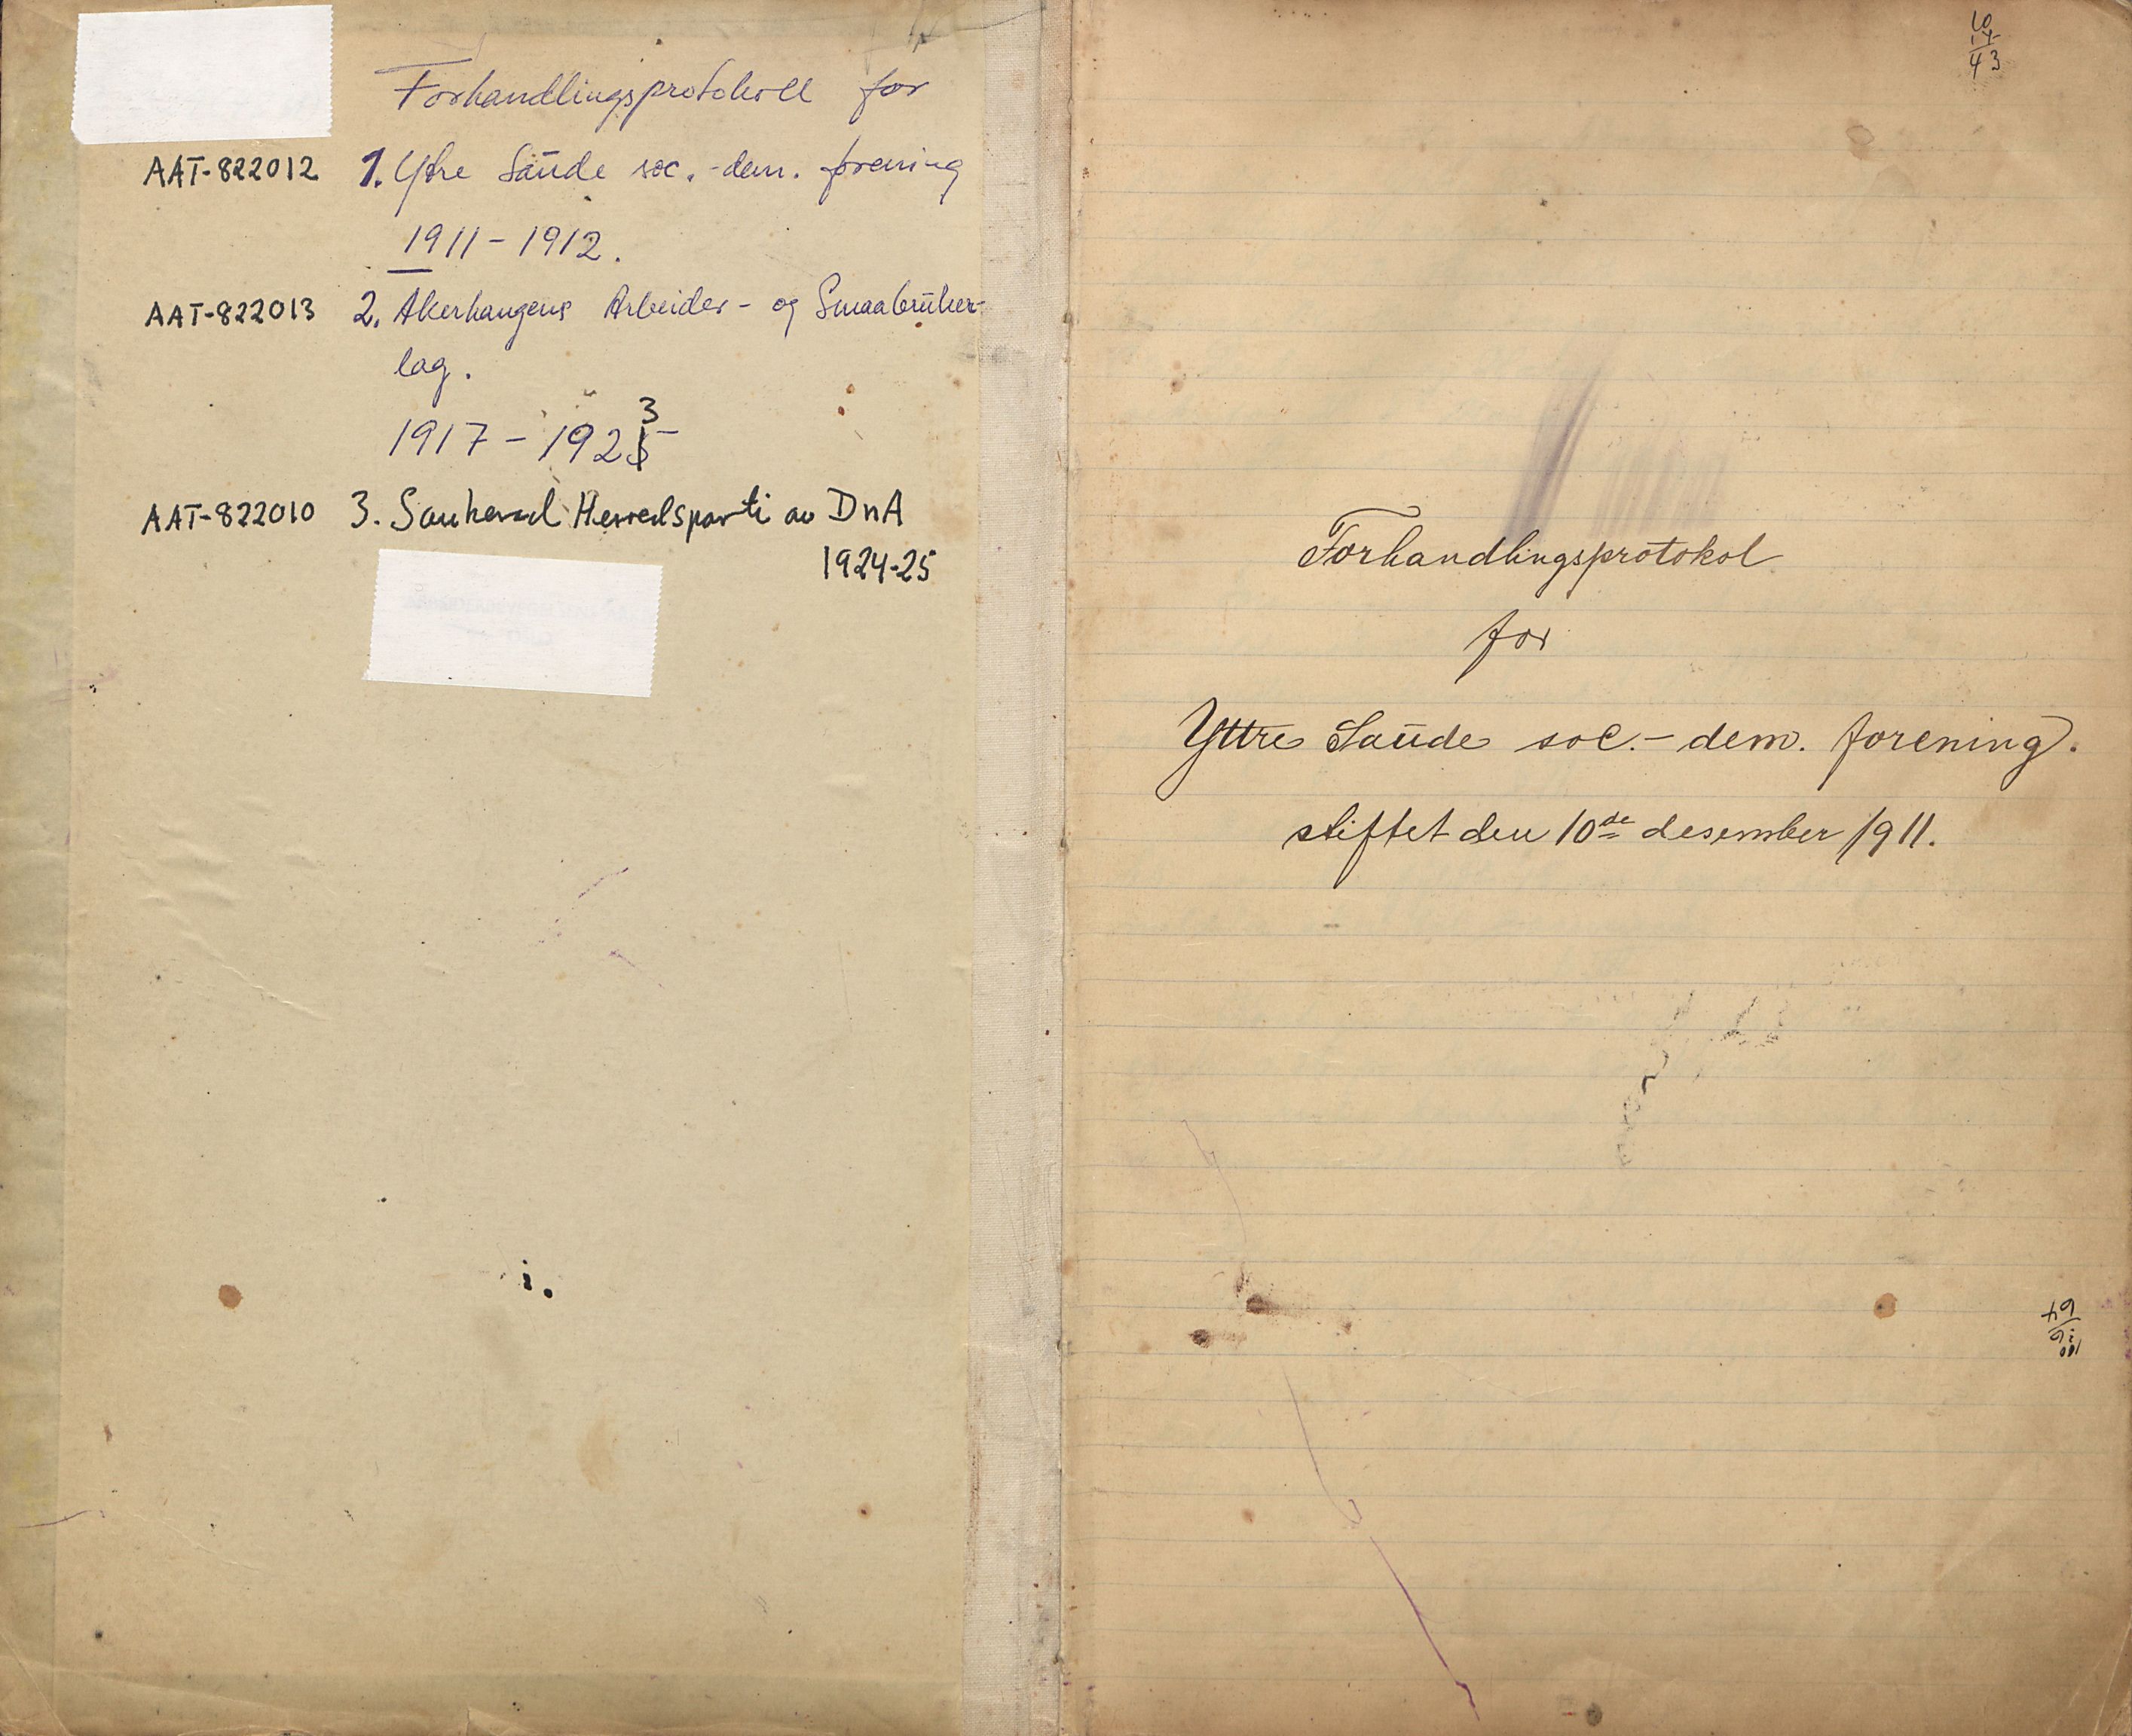 Forhandlingsprotokoll for
AAT-822012 1. Ytre Saude soc.-dem. forening
1911-1912.
AAT-822013 2. Akerhaugens Arbeider- og Smaabruker-
lag.
1917-1923
AAT-822010 3. Sauherad Herredsparti av DnA
1924-25
10
14
43
Forhandlingsprotokol
for
Yttre Saude soc.- dem. forening.
stiftet den 10de desember 1911.